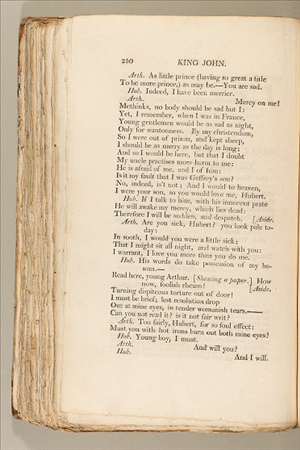 250 KING JOHN.
Arth. As little prince (having so great a title
To be more prince,) as may be.—You are sad.
Hub. Indeed, I have been merrier.
Arth. Mercy on me!
Methinks, no body should be sad but I:
Yet, I remember, when I was in France,
Young gentlemen would be as sad as night,
Only for wantonness. By my christendom,
So I were out of prison, and kept sheep,
I should be as merry as the day is long;
And so I would be here, but that I doubt
My uncle practises more harm to me:
He is afraid of me, and I of him:
Is it my fault that I was Geffrey's son?
No, indeed, is't not; And I would to heaven,
I were your son, so you would love me, Hubert.
Hub. If I talk to him, with his innocent prate
He will awake my mercy, which lies dead:
Therefore I will be sudden, and despatch. [Aside.
Arth. Are you sick, Hubert? you look pale to-
day:
In sooth, I would you were a little sick;
That I might sit all night, and watch with you:
I warrant, I love you more than you do me.
Hub. His words do take possession of my bo-
som.—
Read here, young Arthur. [Showing a paper.] How
now, foolish rheum! [Aside.
Turning dispiteous torture out of door!
I must be brief; lest resolution drop
Out at mine eyes, in tender womanish tears.——
Can you not read it? is it not fair writ?
Arth. Too fairly, Hubert, for so foul effect:
Must you with hot irons burn out both mine eyes?
Hub. Young boy, I must.
Arth. And will you?
Hub. And I will.